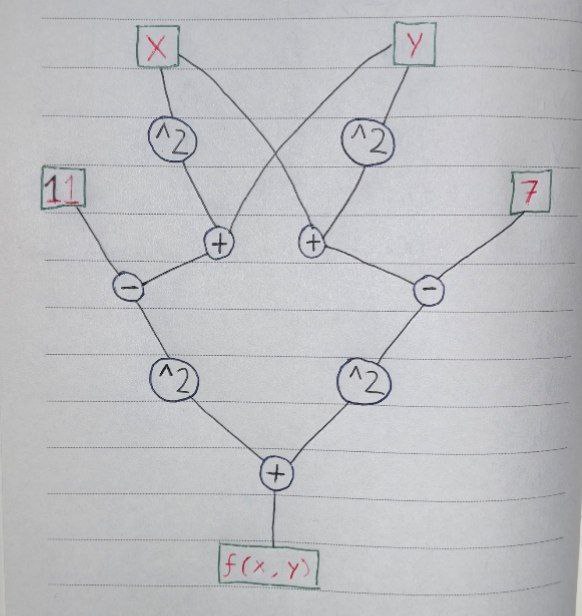 X Y
^2 ^2
11 7
+ +
- -
^2 ^2
+
f(x,y)